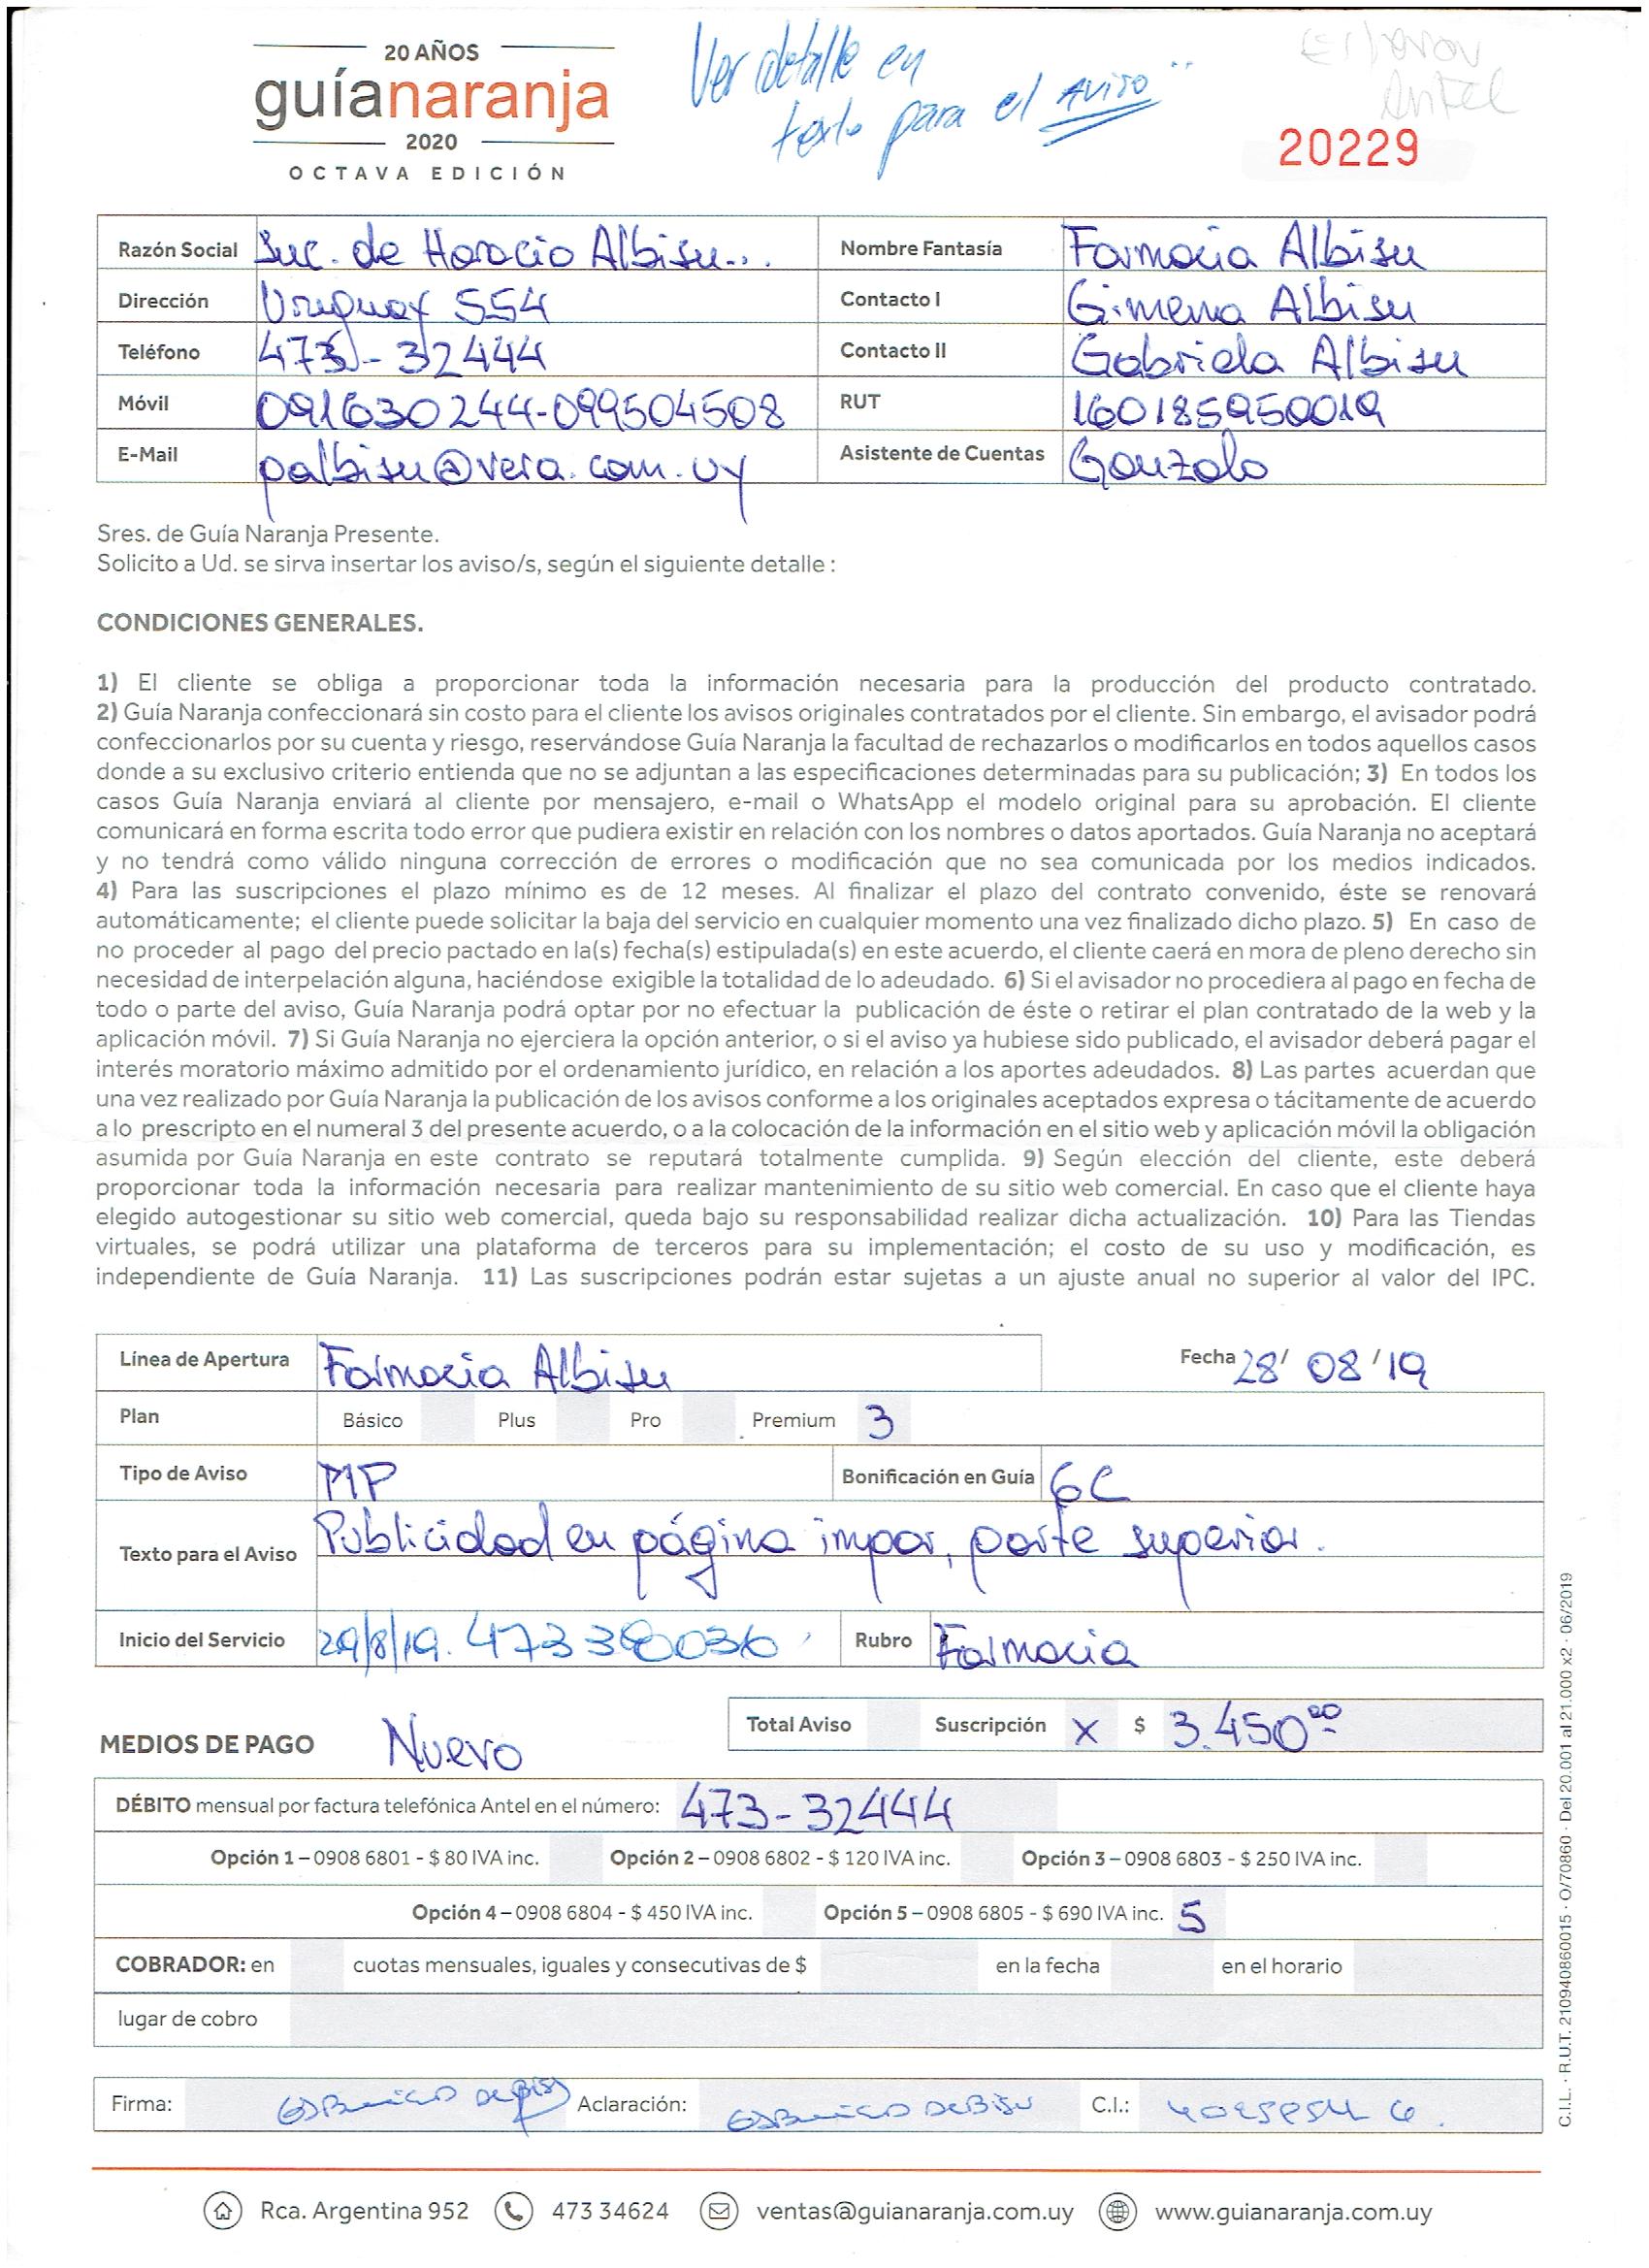 20 AÑOS
guíanaranja
2020
OCTAVA EDICIÓN
Ver detalle en
texto para el AVISO
Antel
20229
Razón Social Suc. de Horacio Albisu... Nombre Fantasía Farmacia Albisu
Dirección Uruguay 554 Contacto I Gimena Albisu
Teléfono 473-32444 Contacto II Gabriela Albisu
Móvil 091630244-099504508 RUT 160185950019
E-Mail palbisu@vera.com.uy Asistente de Cuentas Gonzalo
Sres. de Guía Naranja Presente.
Solicito a Ud. se sirva insertar los aviso/s, según el siguiente detalle :
CONDICIONES GENERALES.
1) El cliente se obliga a proporcionar toda la información necesaria para la producción del producto contratado.
2) Guía Naranja confeccionará sin costo para el cliente los avisos originales contratados por el cliente. Sin embargo, el avisador podrá
confeccionarlos por su cuenta y riesgo, reservándose Guía Naranja la facultad de rechazarlos o modificarlos en todos aquellos casos
donde a su exclusivo criterio entienda que no se adjuntan a las especificaciones determinadas para su publicación; 3) En todos los
casos Guía Naranja enviará al cliente por mensajero, e-mail o WhatsApp el modelo original para su aprobación. El cliente
comunicará en forma escrita todo error que pudiera existir en relación con los nombres o datos aportados. Guía Naranja no aceptará
y no tendrá como válido ninguna corrección de errores o modificación que no sea comunicada por los medios indicados.
4) Para las suscripciones el plazo mínimo es de 12 meses. Al finalizar el plazo del contrato convenido, éste se renovará
automáticamente; el cliente puede solicitar la baja del servicio en cualquier momento una vez finalizado dicho plazo. 5) En caso de
no proceder al pago del precio pactado en la(s) fecha(s) estipulada(s) en este acuerdo, el cliente caerá en mora de pleno derecho sin
necesidad de interpelación alguna, haciéndose exigible la totalidad de lo adeudado. 6) Si el avisador no procediera al pago en fecha de
todo o parte del aviso, Guía Naranja podrá optar por no efectuar la publicación de éste o retirar el plan contratado de la web y la
aplicación móvil. 7) Si Guía Naranja no ejerciera la opción anterior, o si el aviso ya hubiese sido publicado, el avisador deberá pagar el
interés moratorio máximo admitido por el ordenamiento jurídico, en relación a los aportes adeudados. 8) Las partes acuerdan que
una vez realizado por Guía Naranja la publicación de los avisos conforme a los originales aceptados expresa o tácitamente de acuerdo
a lo prescripto en el numeral 3 del presente acuerdo, o a la colocación de la información en el sitio web y aplicación móvil la obligación
asumida por Guía Naranja en este contrato se reputará totalmente cumplida. 9) Según elección del cliente, este deberá
proporcionar toda la información necesaria para realizar mantenimiento de su sitio web comercial. En caso que el cliente haya
elegido autogestionar su sitio web comercial, queda bajo su responsabilidad realizar dicha actualización. 10) Para las Tiendas
virtuales, se podrá utilizar una plataforma de terceros para su implementación; el costo de su uso y modificación, es
independiente de Guía Naranja. 11) Las suscripciones podrán estar sujetas a un ajuste anual no superior al valor del IPC.
Línea de Apertura Farmacia Albisu Fecha 28/ 08 /19
Plan Básico Plus Pro Premium 3
Tipo de Aviso MP Bonificación en Guía 6C
Texto para el Aviso Publicidad en página impar, parte superior.
Inicio del Servicio 29/8/19. Rubro Farmacia
MEDIOS DE PAGO Nuevo Total Aviso Suscripción X $ 3.450
DÉBITO mensual por factura telefónica Antel en el número: 473-32444
Opción 1 – 0908 6801 - $ 80 IVA inc. Opción 2 – 0908 6802 - $ 120 IVA inc. Opción 3 – 0908 6803 - $ 250 IVA inc.
Opción 4 – 0908 6804 - $ 450 IVA inc. Opción 5 – 0908 6805 - $ 690 IVA inc. 5
COBRADOR: en cuotas mensuales, iguales y consecutivas de $ en la fecha en el horario
lugar de cobro
Firma: Aclaración: C.I.:
C.I.L. · R.U.T. 210940860015 · O/70860 · Del 20.001 al 21.000 x2 · 06/2019
Rca. Argentina 952 473 34624 ventas@guianaranja.com.uy www.guianaranja.com.uy